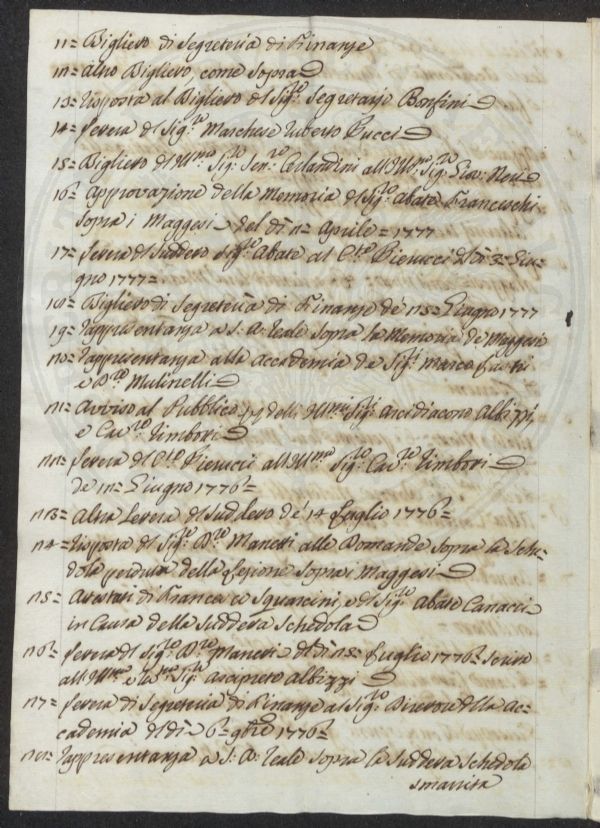 11= Biglietto di Segreteria di Finanze
12= Altro Biglietto, come sopra
13= Risposta al Biglietto del Sig.re Segretario Bonfini
14= Lettera del Sig.re Marchese Ruberto Pucci
15= Biglietto dell'Ill.mo Sig.re Sen.re Orlandini all'Ill.mo Sig.re Giov: Neri
16= Approvazione della Memoria del Sig.re Abate Franceschi
sopra i Maggesi del dì 12 Aprile= 1777
17= Lettera del suddetto Sig.re Abate al C.te Pierucci del dì 3= Giu-
gno 1777=
18= Biglietto di Segreteria di Finanze de' 25= Giugno 1777
19= Rappresentanza a S. A. Reale sopra la Memoria de' Maggesi
20= Rappresentanza alla Accademia de Sig.ri Marco
e D.re Mulinelli
21= Avviso al Pubblico pp. delli Ill.mi Sig.ri Arcidiacono Albizzi,
e Cav.re Rimbori
22= Lettera del C.te Pierucci all'Ill.mo Sig.re Cav.re Rimbori
de 12= Giugno 1776=
23= Altra Lettera del suddetto de' 14 Luglio 1776=
24= Risposta del Sig.re D.re Manetti alle Domande sopra la Sche-
dola perduta della Lezione sopra i Maggesi
25= Attestati di Francesco Squarcini, e del Sig.re Abate Canacci
in Causa della suddetta Schedola
26= Lettera del Sig.re D.re Manetti del dì 28= Luglio 1776= scritta
all'Ill.mo Sig.re Arciprete Albizzi
27= Lettera di Segreteria di Finanze al Sig.re Direttore della Ac-
cademia del dì 6= 9bre 1776=
28= Rappresentanza a S. A. Reale sopra la suddetta Schedola
smarrita